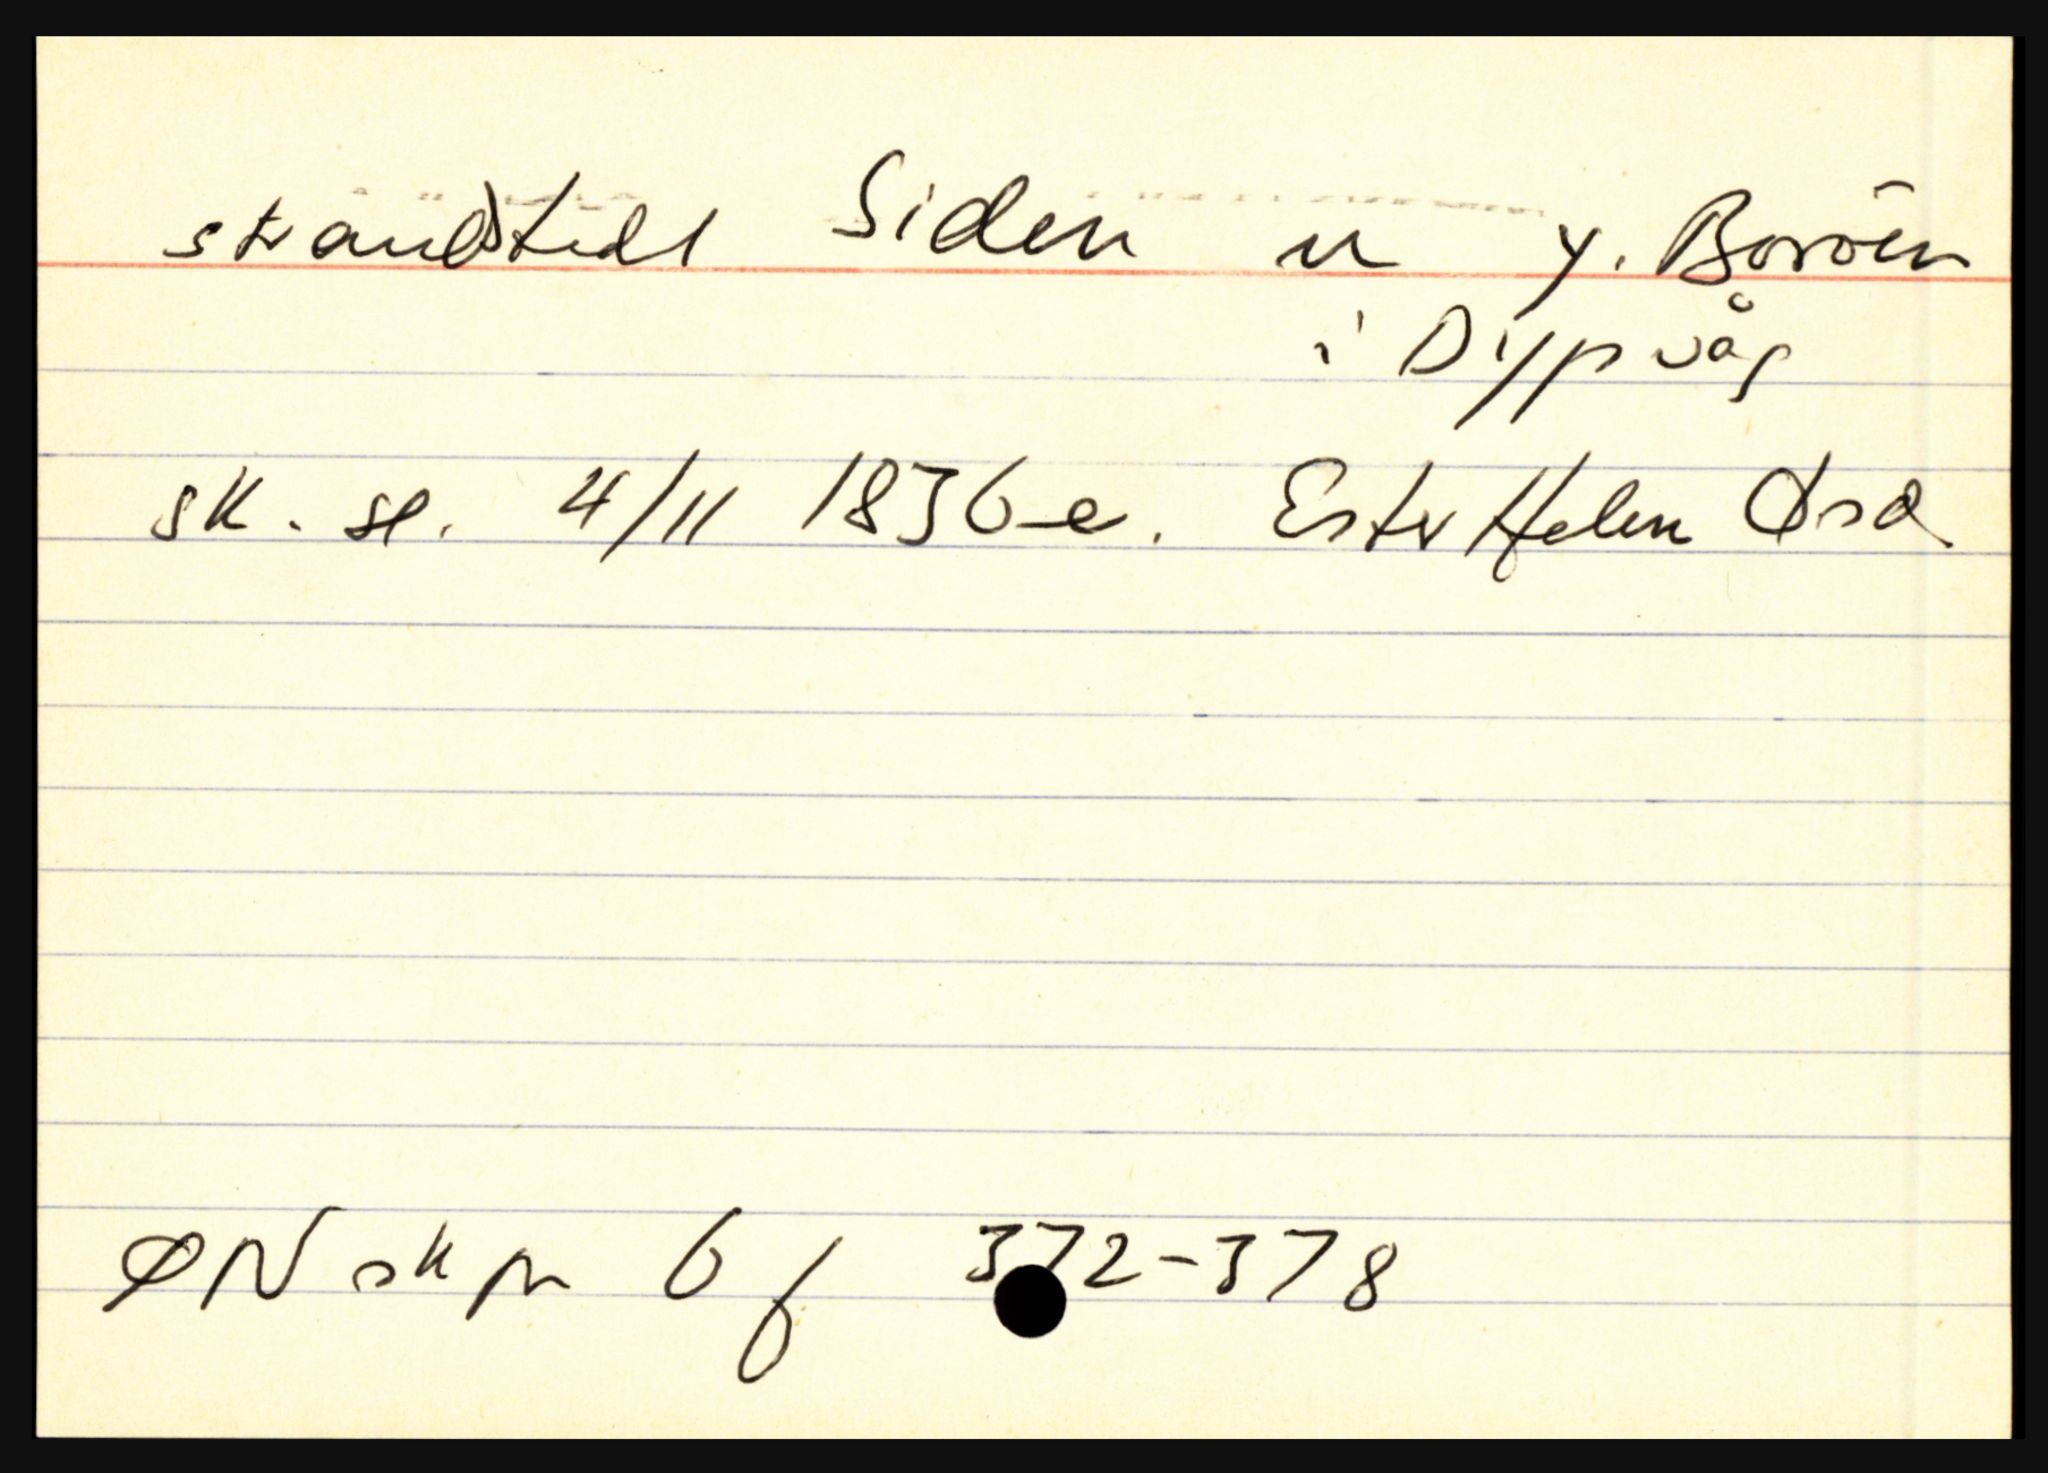 strandstedt Siden u y. Boröen
i Dypvåg
sk. se. 4/11 1836 e. Estr Helen Øsd
ØN sk pr 6 f 372-378